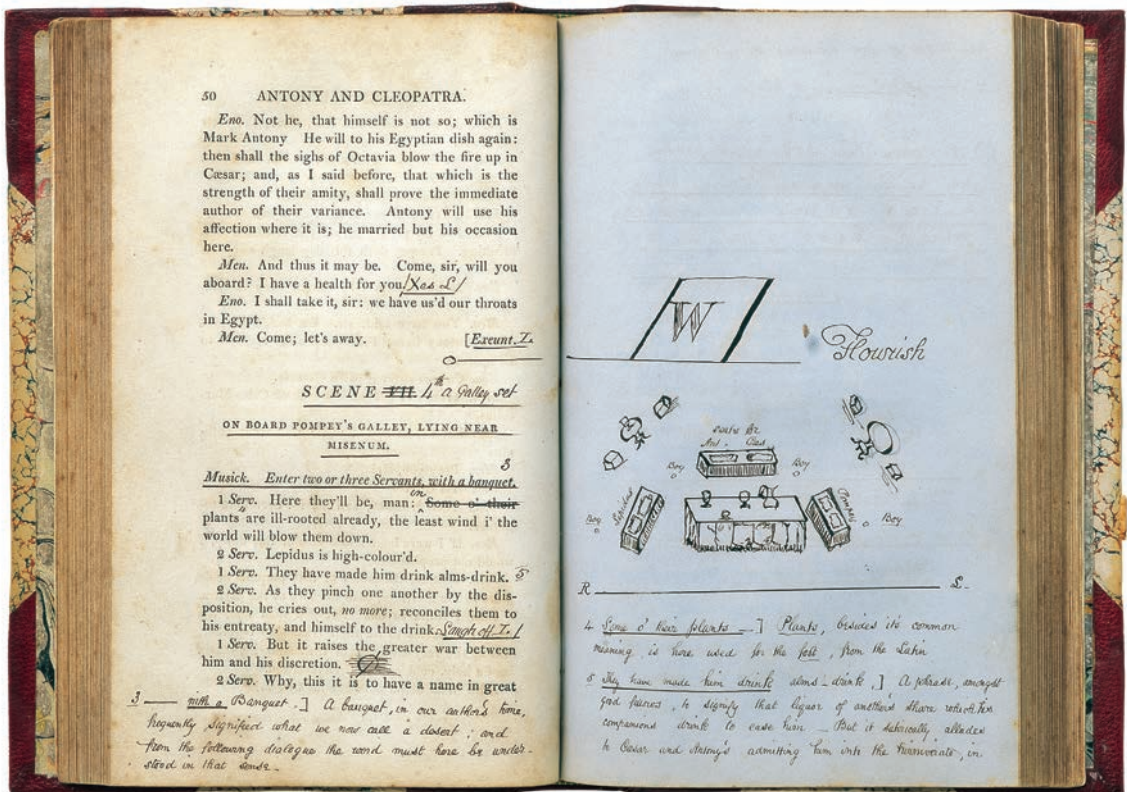 50 ANTONY AND CLEOPATRA.
Eno. Not he, that himself is not so; which is
Mark Antony He will to his Egyptian dish again:
then shall the sighs of Octavia blow the fire up in
Cæsar; and, as I said before, that which is the
strength of their amity, shall prove the immediate
author of their variance. Antony will use his
affection where it is; he married but his occasion
here.
Men. And thus it may be. Come, sir, will you
aboard? I have a health for you
Eno. I shall take it, sir: we have us'd our throats
in Egypt.
Men. Come; let's away. [Exeunt. L.
SCENE VII. 4th a Galley set
ON BOARD POMPEY'S GALLEY, LYING NEAR
MISENUM.
3
Musick. Enter two or three Servants, with a banquet.
1 Serv. Here they'll be, man: Some o' their
plants 4 are ill-rooted already, the least wind i' the
world will blow them down.
2 Serv. Lepidus is high-colour'd.
1 Serv. They have made him drink alms-drink. 5
2 Serv. As they pinch one another by the dis-
position, he cries out, no more; reconciles them to
his entreaty, and himself to the drink. Laugh off L.
1 Serv. But it raises the greater war between
him and his discretion.
2 Serv. Why, this it is to have a name in great
3 with a Banquet.] A banquet, in our author's time,
frequently signified what we now call a desert; and
from the following dialogue the word must here be under-
stood in that sense.
W
Flourish
couche for
Ant. Cæs
Boy Boy
Lepidus Pompey
Boy Boy
R L
4 Some o' their plants ] Plants, besides its common
meaning is here used for the foot, from the Latin
5 They have made him drink alms-drink,] A phrase, amongst
good fellows, to signify that liquor of another's share which his
companions drink to ease him. But it satirically alludes
to Cæsar and Antony's admitting him into the triumvirate, in